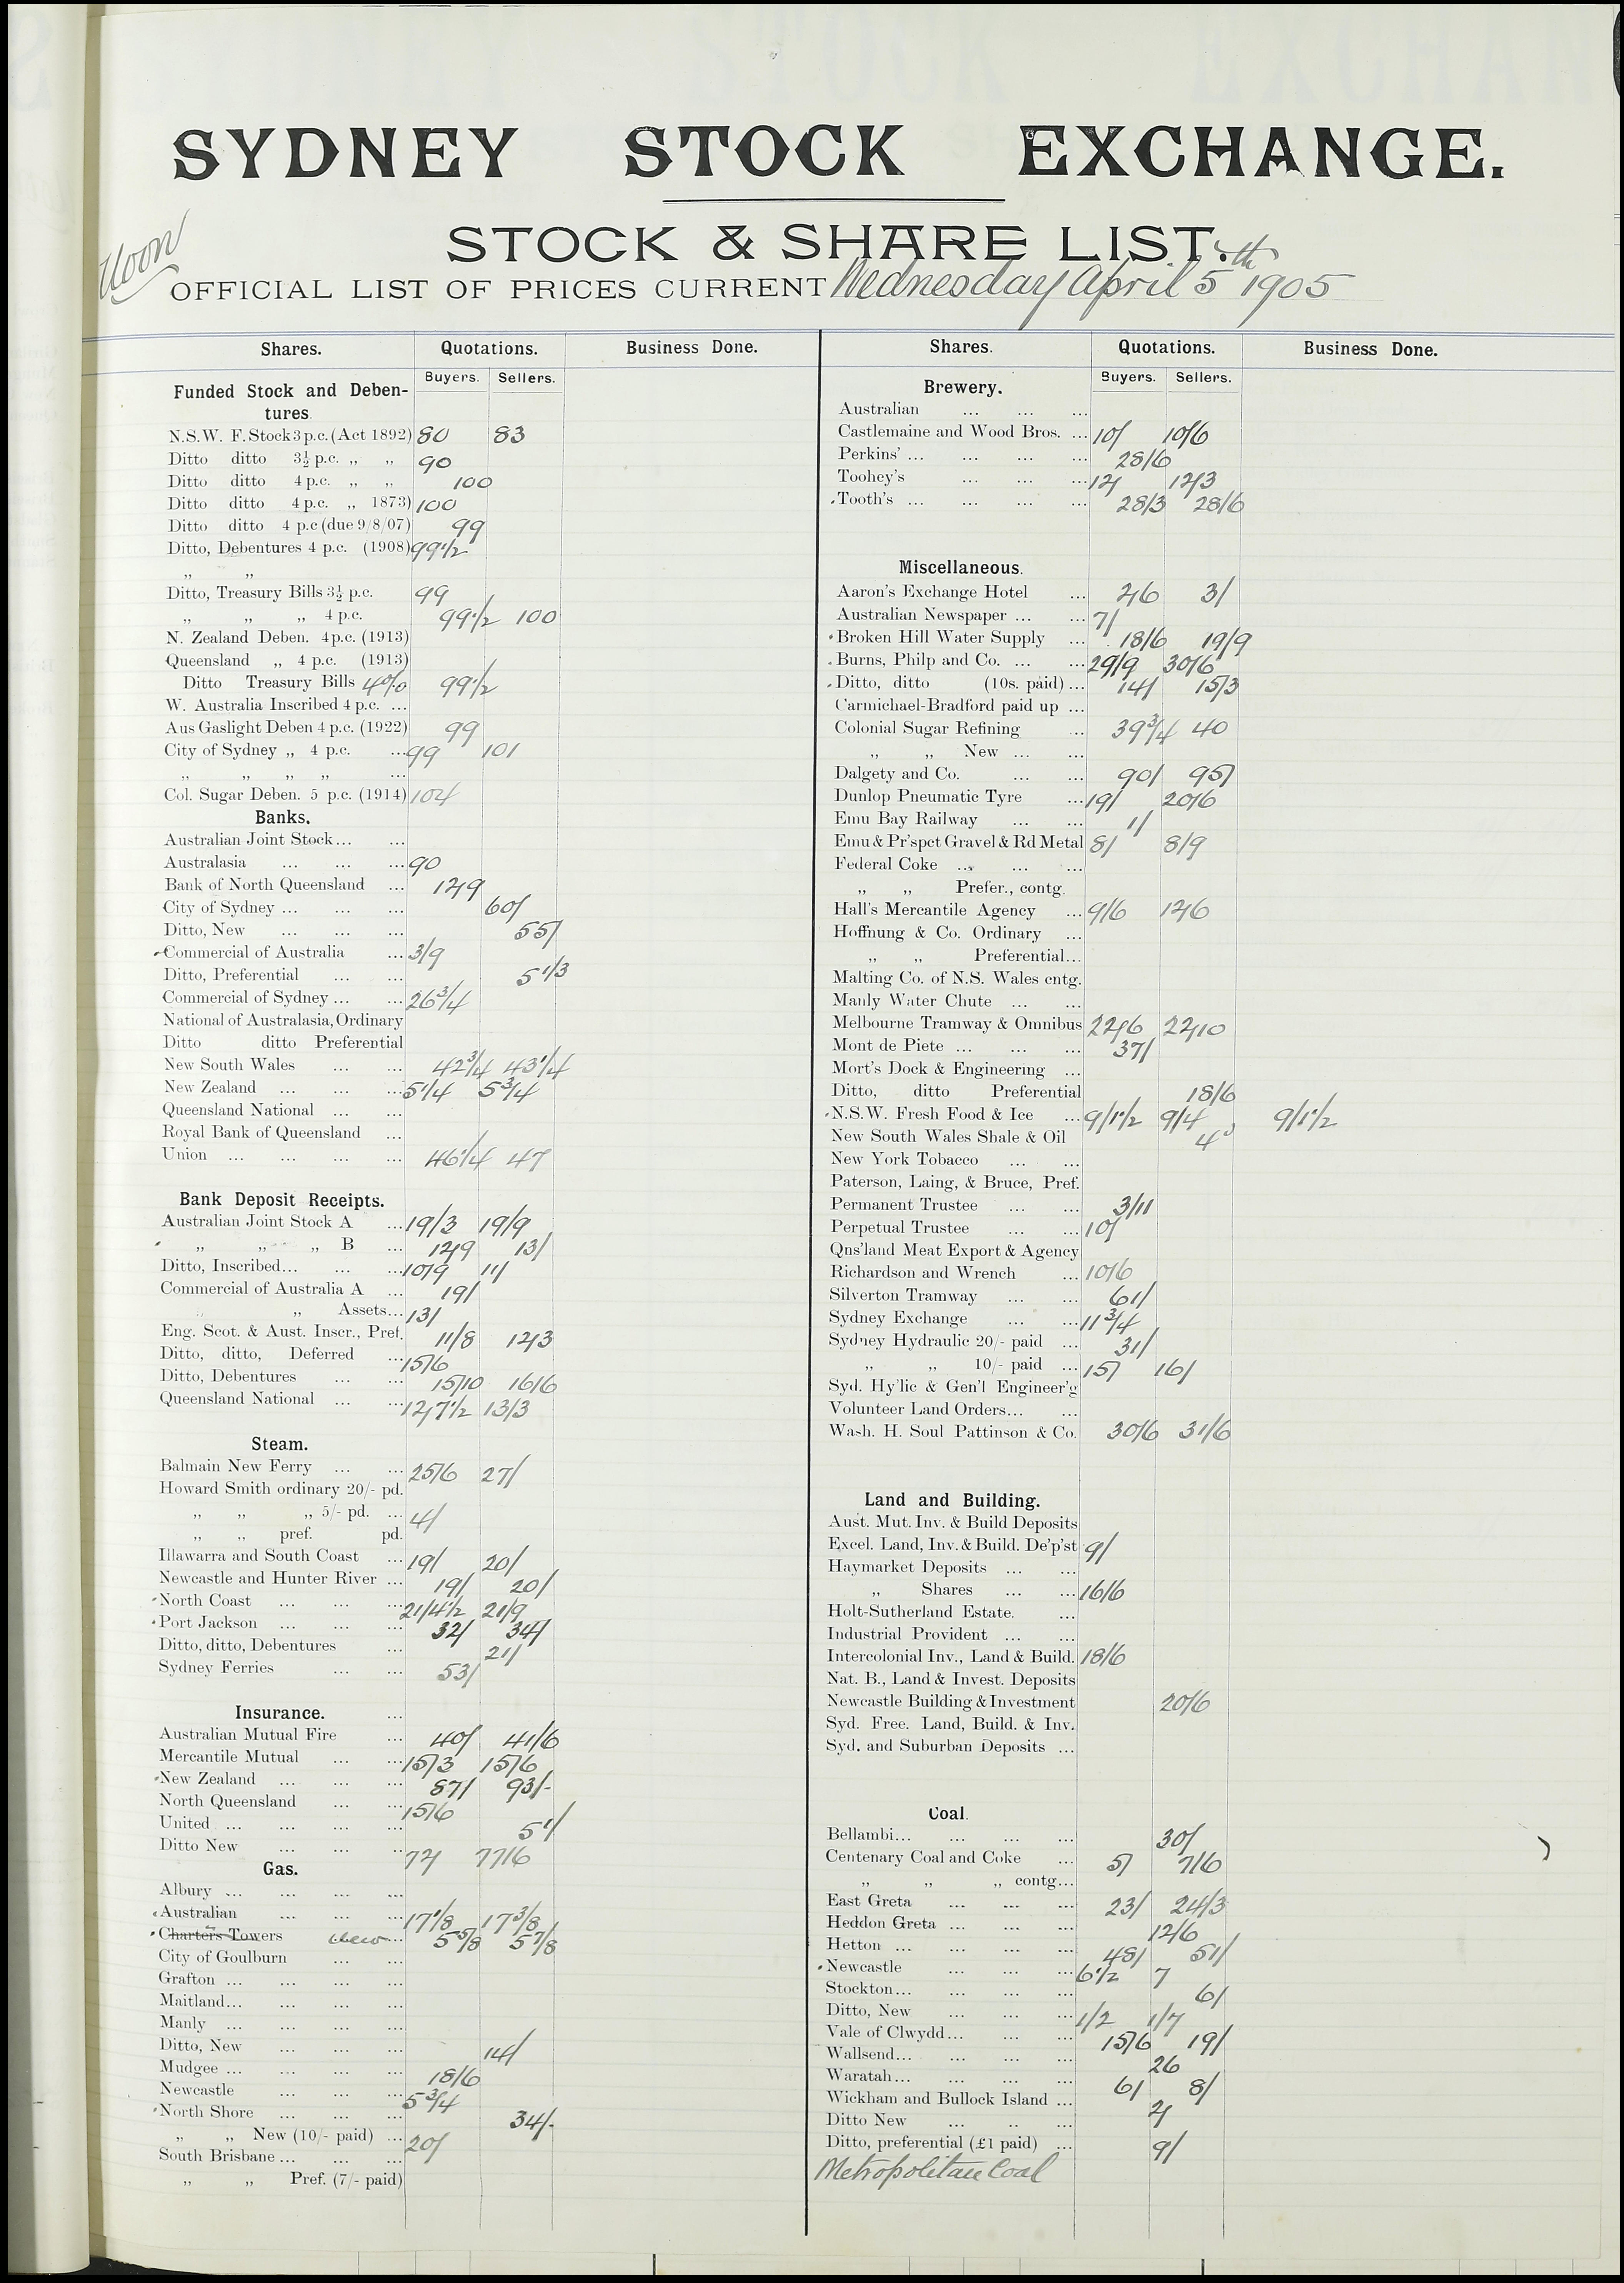 SYDNEY STOCK EXCHANGE.
STOCK & SHARE LIST.
Noon
OFFICIAL LIST OF PRICES CURRENT Wednesday April 5th 1905
Shares. Quotations. Business Done.
Buyers. Sellers.
Funded Stock and Deben-
tures.
N.S.W. F.Stock 3 p.c. (Act 1892) 80 83
Ditto ditto 3½ p.c. ,, ,, 90
Ditto ditto 4 p.c. ,, ,, 100
Ditto ditto 4 p.c. ,, 1873) 100
Ditto ditto 4 p.c (due 9/8/07) 99
Ditto, Debentures 4 p.c. (1908) 99½
,, ,,
Ditto, Treasury Bills 3½ p.c. 99
,, ,, ,, 4 p.c. 99½ 100
N. Zealand Deben. 4 p.c. (1913)
Queensland ,, 4 p.c. (1913)
Ditto Treasury Bills 4% 99½
W. Australia Inscribed 4 p.c. ...
Aus Gaslight Deben 4 p.c. (1922) 99
City of Sydney ,, 4 p.c. ... 99 101
,, ,, ,, ,, ...
Col. Sugar Deben. 5 p.c. (1914) 104
Banks.
Australian Joint Stock... ...
Australasia ... ... ... 90
Bank of North Queensland ... 12/9
City of Sydney ... ... ... 60/
Ditto, New ... ... ... 55/
Commercial of Australia ... 3/9
Ditto, Preferential ... ... 51/3
Commercial of Sydney ... ... 26¾
National of Australasia, Ordinary
Ditto ditto Preferential
New South Wales ... ... 42¾ 43¼
New Zealand ... ... ... 5¼ 5¾
Queensland National ... ...
Royal Bank of Queensland ...
Union ... ... ... ... 46¼ 47
Bank Deposit Receipts.
Australian Joint Stock A ... 19/3 19/9
,, ,, ,, B ... 12/9 13/
Ditto, Inscribed... ... ... 10/9 11/
Commercial of Australia A ... 19/
,, ,, Assets... 13/
Eng. Scot. & Aust. Inscr., Pref. 11/8 12/3
Ditto, ditto, Deferred ... 15/6
Ditto, Debentures ... ... 15/10 16/6
Queensland National ... ... 12/7½ 13/3
Steam.
Balmain New Ferry ... ... 25/6 27/
Howard Smith ordinary 20/- pd.
,, ,, ,, 5/- pd. ... 4/
,, ,, pref. pd.
Illawarra and South Coast ... 19/ 20/
Newcastle and Hunter River ... 19/ 20/
North Coast ... ... ... 21/4½ 21/9
Port Jackson ... ... ... 32/ 34/
Ditto, ditto, Debentures ... 21/
Sydney Ferries ... ... 53/
Insurance. ...
Australian Mutual Fire ... 40/ 41/6
Mercantile Mutual ... ... 15/3 15/6
New Zealand ... ... ... 87/ 93/-
North Queensland ... ... 15/6
United ... ... ... ... 51/
Ditto New ... ... ... 72/ 77/6
Gas.
Albury ... ... ... ...
Australian ... ... ... 17⅛ 17⅜
Charters Towers New ... 5⅝ 5⅞
City of Goulburn ... ...
Grafton ... ... ... ...
Maitland... ... ... ...
Manly ... ... ... ...
Ditto, New ... ... ... 14/
Mudgee ... ... ... ... 18/6
Newcastle ... ... ... 5¾
North Shore ... ... ... 34/-
,, ,, New (10/- paid) ... 20/
South Brisbane ... ... ...
,, ,, Pref. (7/- paid)
Shares. Quotations. Business Done.
Buyers. Sellers.
Brewery.
Australian ... ... ...
Castlemaine and Wood Bros. ... 10/ 10/6
Perkins' ... ... ... ... 28/6
Toohey's ... ... ... 12/ 12/3
Tooth's ... ... ... ... 28/3 28/6
Miscellaneous.
Aaron's Exchange Hotel ... 2/6 3/
Australian Newspaper ... ... 7/
Broken Hill Water Supply ... 18/6 19/9
Burns, Philp and Co. ... ... 29/9 30/6
Ditto, ditto (10s. paid) ... 14/ 15/3
Carmichael-Bradford paid up ...
Colonial Sugar Refining ... 39¾ 40
,, ,, New ... ...
Dalgety and Co. ... ... 90/ 95/
Dunlop Pneumatic Tyre ... 19/ 20/6
Emu Bay Railway ... ... 1/
Emu & Pr'spct Gravel & Rd Metal 8/ 8/9
Federal Coke ... ... ...
,, ,, Prefer., contg.
Hall's Mercantile Agency ... 9/6 12/6
Hoffnung & Co. Ordinary ...
,, ,, Preferential...
Malting Co. of N.S. Wales cntg.
Manly Water Chute ... ...
Melbourne Tramway & Omnibus 22/6 22/10
Mont de Piete ... ... ... 37/
Mort's Dock & Engineering ...
Ditto, ditto Preferential 18/6
N.S.W. Fresh Food & Ice ... 9/1½ 9/4 9/1½
New South Wales Shale & Oil
New York Tobacco ... ...
Paterson, Laing, & Bruce, Pref.
Permanent Trustee ... ... 3/11
Perpetual Trustee ... ... 10/
Qns'land Meat Export & Agency
Richardson and Wrench ... 10/6
Silverton Tramway ... ... 61/
Sydney Exchange ... ... 11¾
Sydney Hydraulic 20/- paid ... 31/
,, ,, 10/- paid ... 15/ 16/
Syd. Hy'lic & Gen'l Engineer'g
Volunteer Land Orders... ...
Wash. H. Soul Pattinson & Co. 30/6 31/6
Land and Building.
Aust. Mut. Inv. & Build Deposits
Excel. Land, Inv. & Build. De'p'st 9/
Haymarket Deposits ... ...
,, Shares ... ... 16/6
Holt-Sutherland Estate. ...
Industrial Provident ... ...
Intercolonial Inv., Land & Build. 18/6
Nat. B., Land & Invest. Deposits
Newcastle Building & Investment 20/6
Syd. Free. Land, Build. & Inv.
Syd. and Suburban Deposits ...
Coal.
Bellambi... ... ... ... 30/
Centenary Coal and Coke ... 5/ 7/6
,, ,, ,, contg...
East Greta ... ... ... 23/ 24/3
Heddon Greta ... ... ... 12/6
Hetton ... ... ... ... 48/ 51/
Newcastle ... ... ... 6½ 7
Stockton... ... ... ... 6/
Ditto, New ... ... ... 1/2 1/7
Vale of Clwydd... ... ... 15/6 19/
Wallsend... ... ... ... 26
Waratah... ... ... ... 6/ 8/
Wickham and Bullock Island ... 2/
Ditto New ... .. ...
Ditto, preferential (£1 paid) ... 9/
Metropolitan Coal